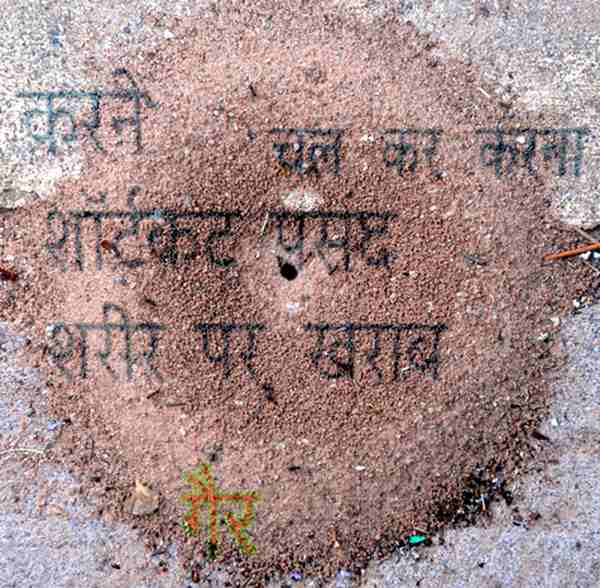 करने
चल कर करना
शॉर्टकट पसंद
शरीर पर खराब
गैर